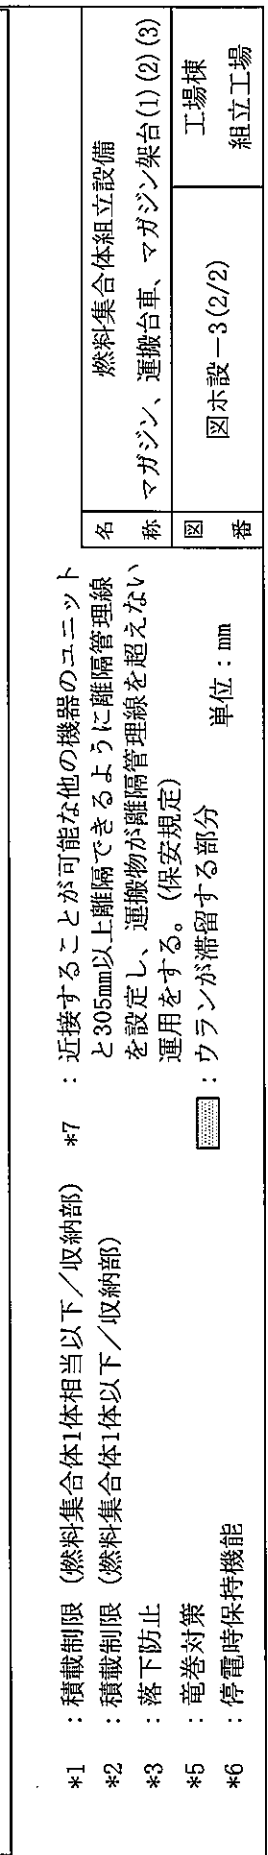 *1 ：積載制限（燃料集合体1体相当以下／収納部）
*2 ：積載制限（燃料集合体1体以下／収納部）
*3 ：落下防止
*5 ：竜巻対策
*6 ：停電時保持機能
*7 ：近接することが可能な他の機器のユニット
と305mm以上離隔できるように離隔管理線
を設定し、運搬物が離隔管理線を超えない
運用をする。（保安規定）
：ウランが滞留する部分
単位：mm
名称
燃料集合体組立設備
マガジン、運搬台車、マガジン架台(1)(2)(3)
図番
図ホ設－3(2/2)
工場棟
組立工場